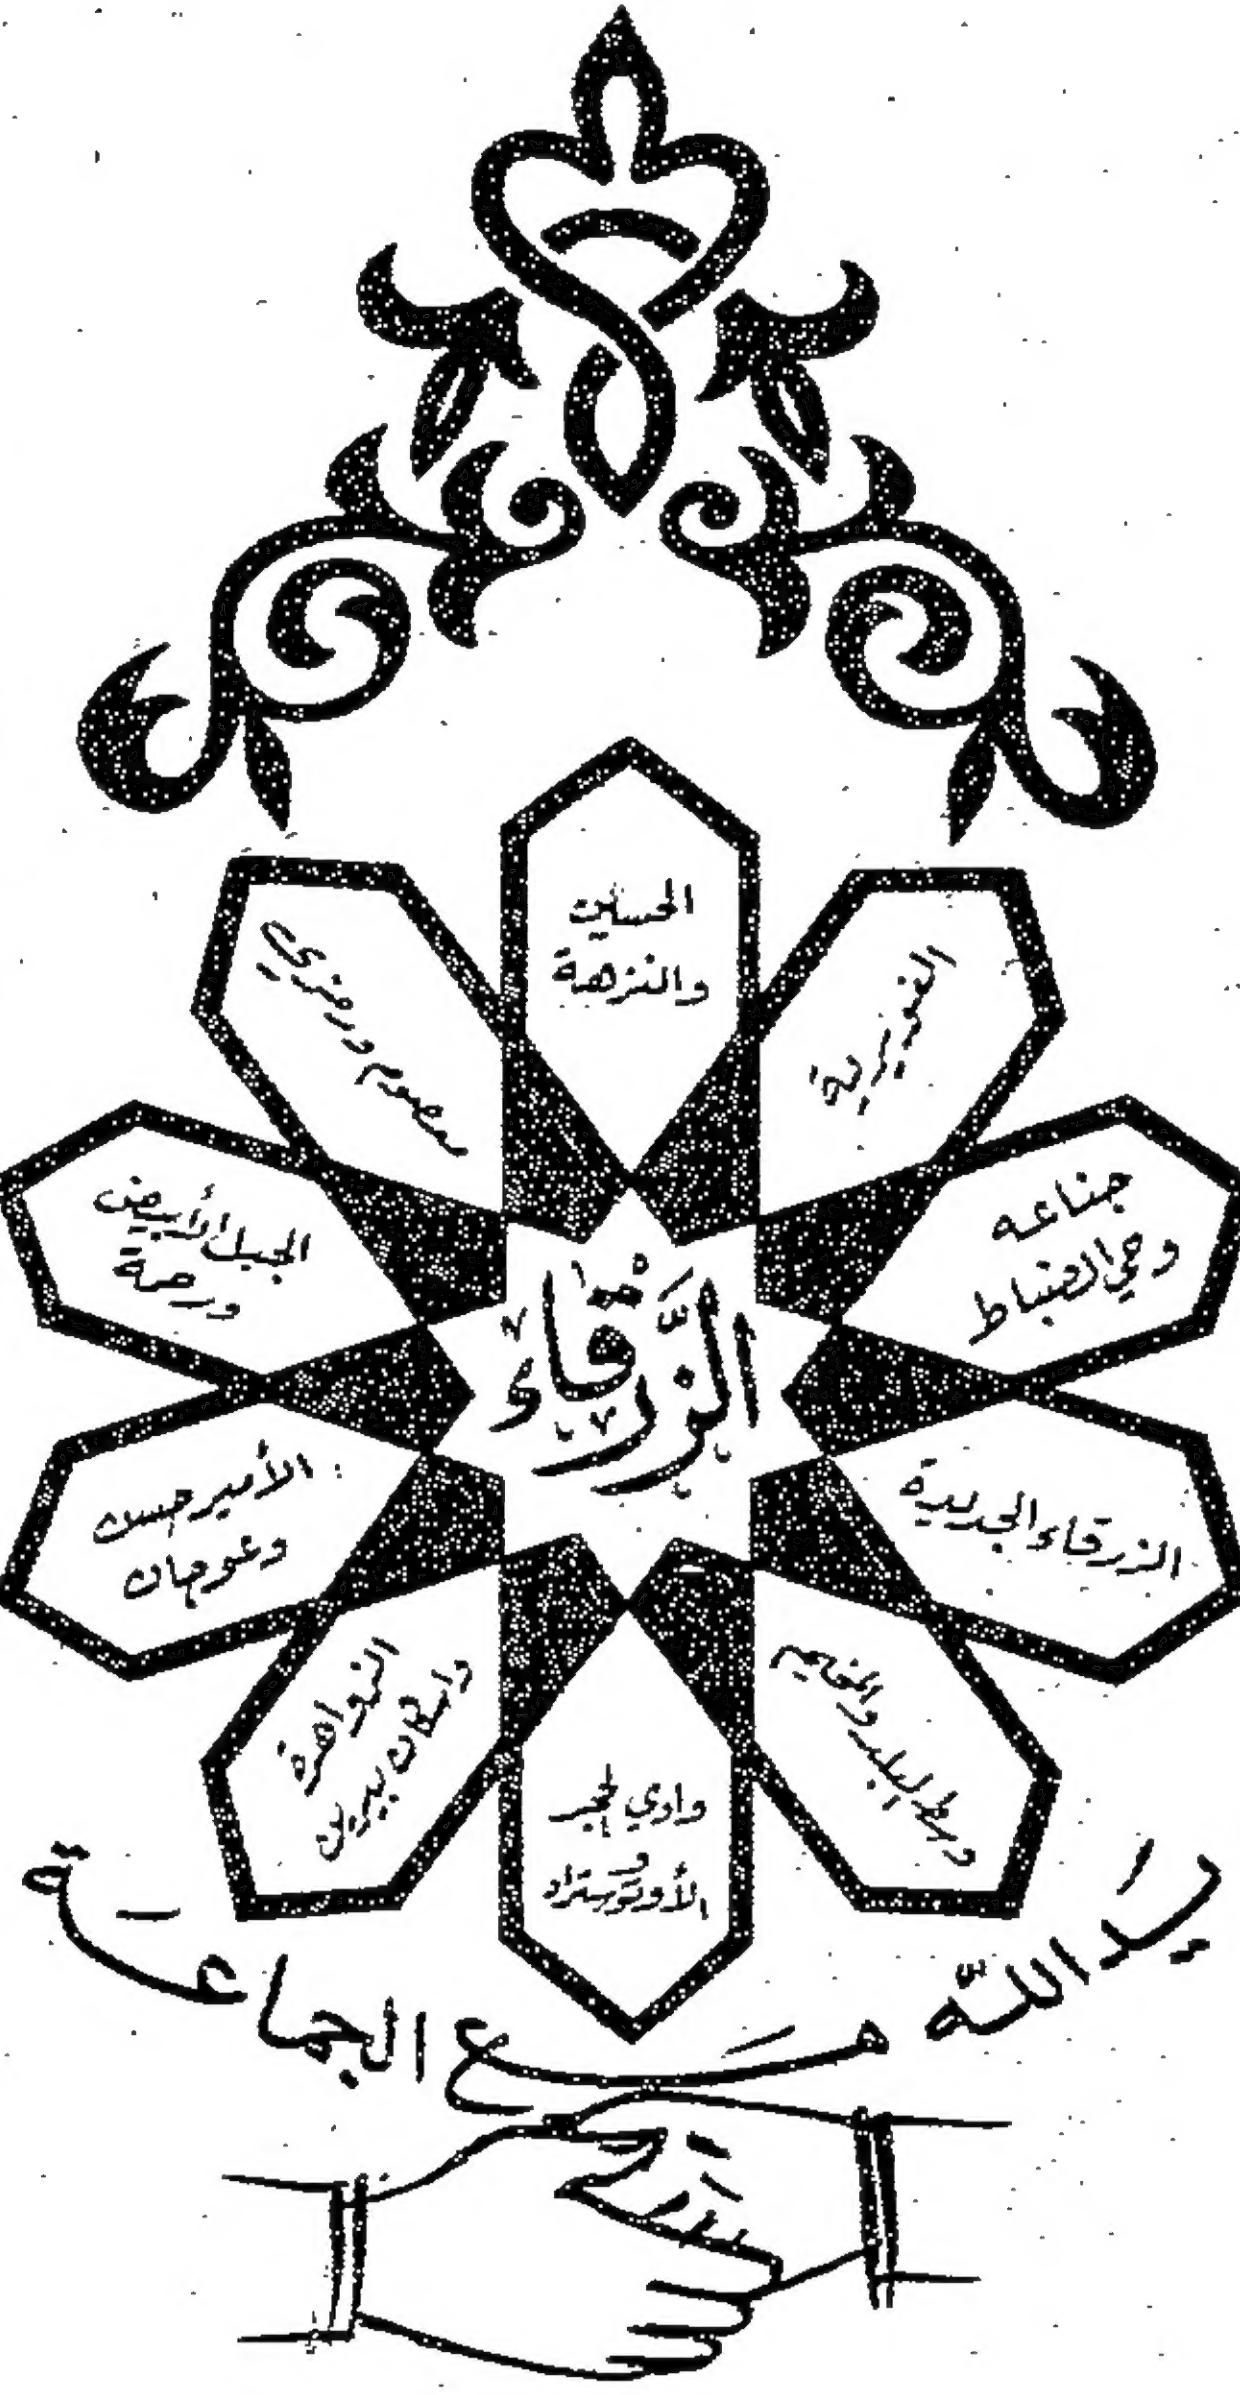 الحسين
والنزهة
الغويرية
جناعه
وحي الضباط
الزرقاء الجديدة
وسط البلد والمخيم
وادي الحجر
و
الأوتوستراد
الزواهرة
واسكان بيرين
الأمير حسن
وعوجان
الجبل الأبيض
ورحمة
معصوم ورمزي
الزَّرقاء
يد اللّه مع الجماعة